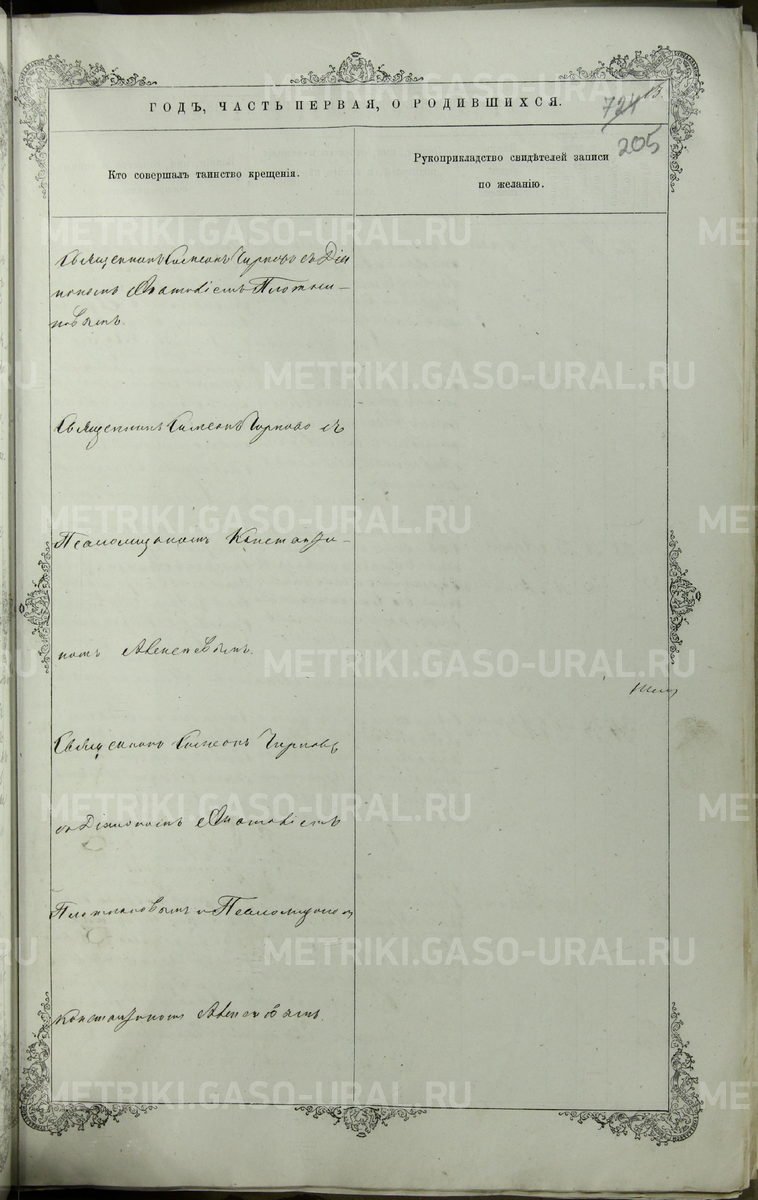 ГОДЪ, ЧАСТЬ ПЕРВАЯ, О РОДИВШИХСЯ.
724 13.
205
Кто совершалъ таинство крещенія.
Рукоприкладство свидѣтелей записи
по желанію.
Священникъ Симеонъ Чирковъ съ Діа
кономъ Плотни-
ковымъ.
Священникъ Симеонъ Чирковъ съ
Псаломщикомъ Константи-
номъ
Священникъ Симеонъ Чирковъ
съ Діакономъ
Плотниковымъ и Псаломщикомъ
Константиномъ
METRIKI.GASO-URAL.RU